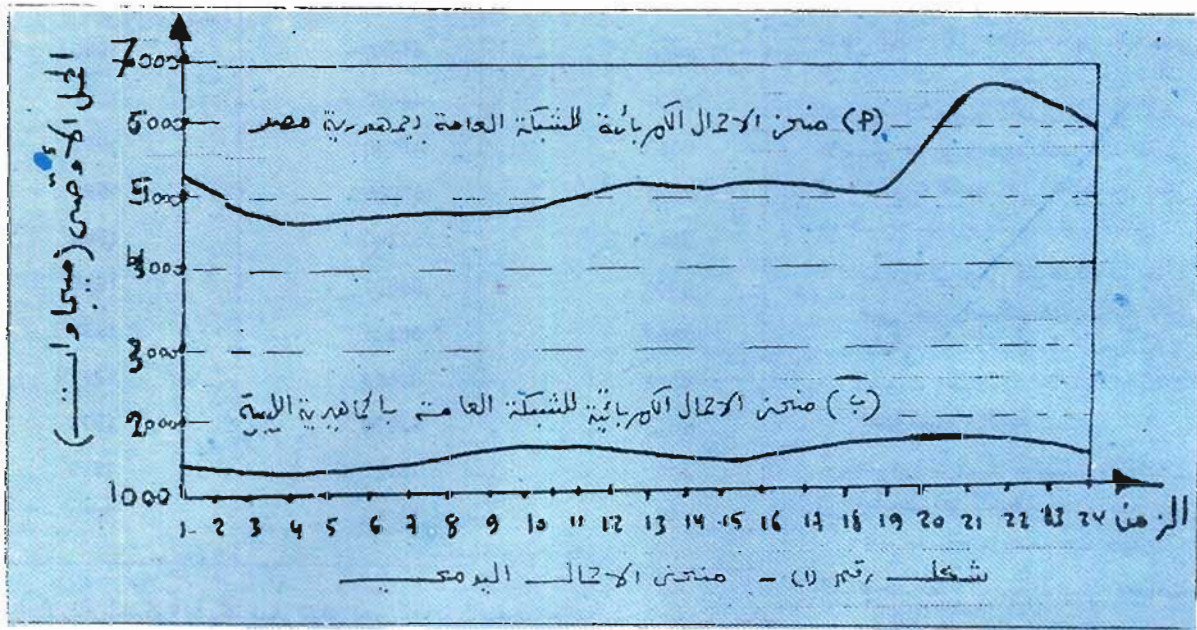 الحمل الأقصى (ميجاوات)
7000
6000
5000
4000
3000
2000
1000
(أ) منحنى الاحمال الكهربائية للشبكة العامة لجمهورية مصر
(ب) منحنى الاحمال الكهربائية للشبكة العامة بالجماهيرية الليبية
1 2 3 4 5 6 7 8 9 10 11 12 13 14 15 16 17 18 19 20 21 22 23 24 الزمن
شكل رقم (1) - منحنى الاحمال اليومي